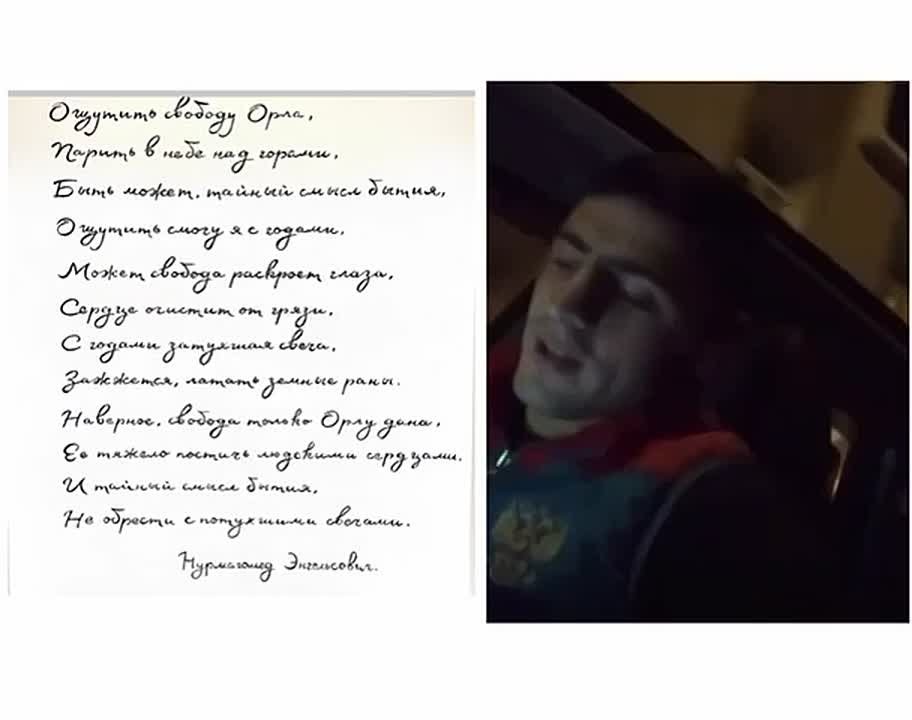 Ощутить свободу Орла,
Парить в небе над горами,
Быть может, тайный смысл бытия,
Ощутить смогу я с годами,
Может свобода раскроет глаза,
Сердце очистит от грязи,
С годами затухшая свеча,
Зажжется, латать земные раны.
Наверное, свобода только Орлу дана,
Ее тяжело постичь людскими сердцами,
И тайный смысл бытия,
Не обрести с потухшими свечами.
Нурмагомед Энгельсович.